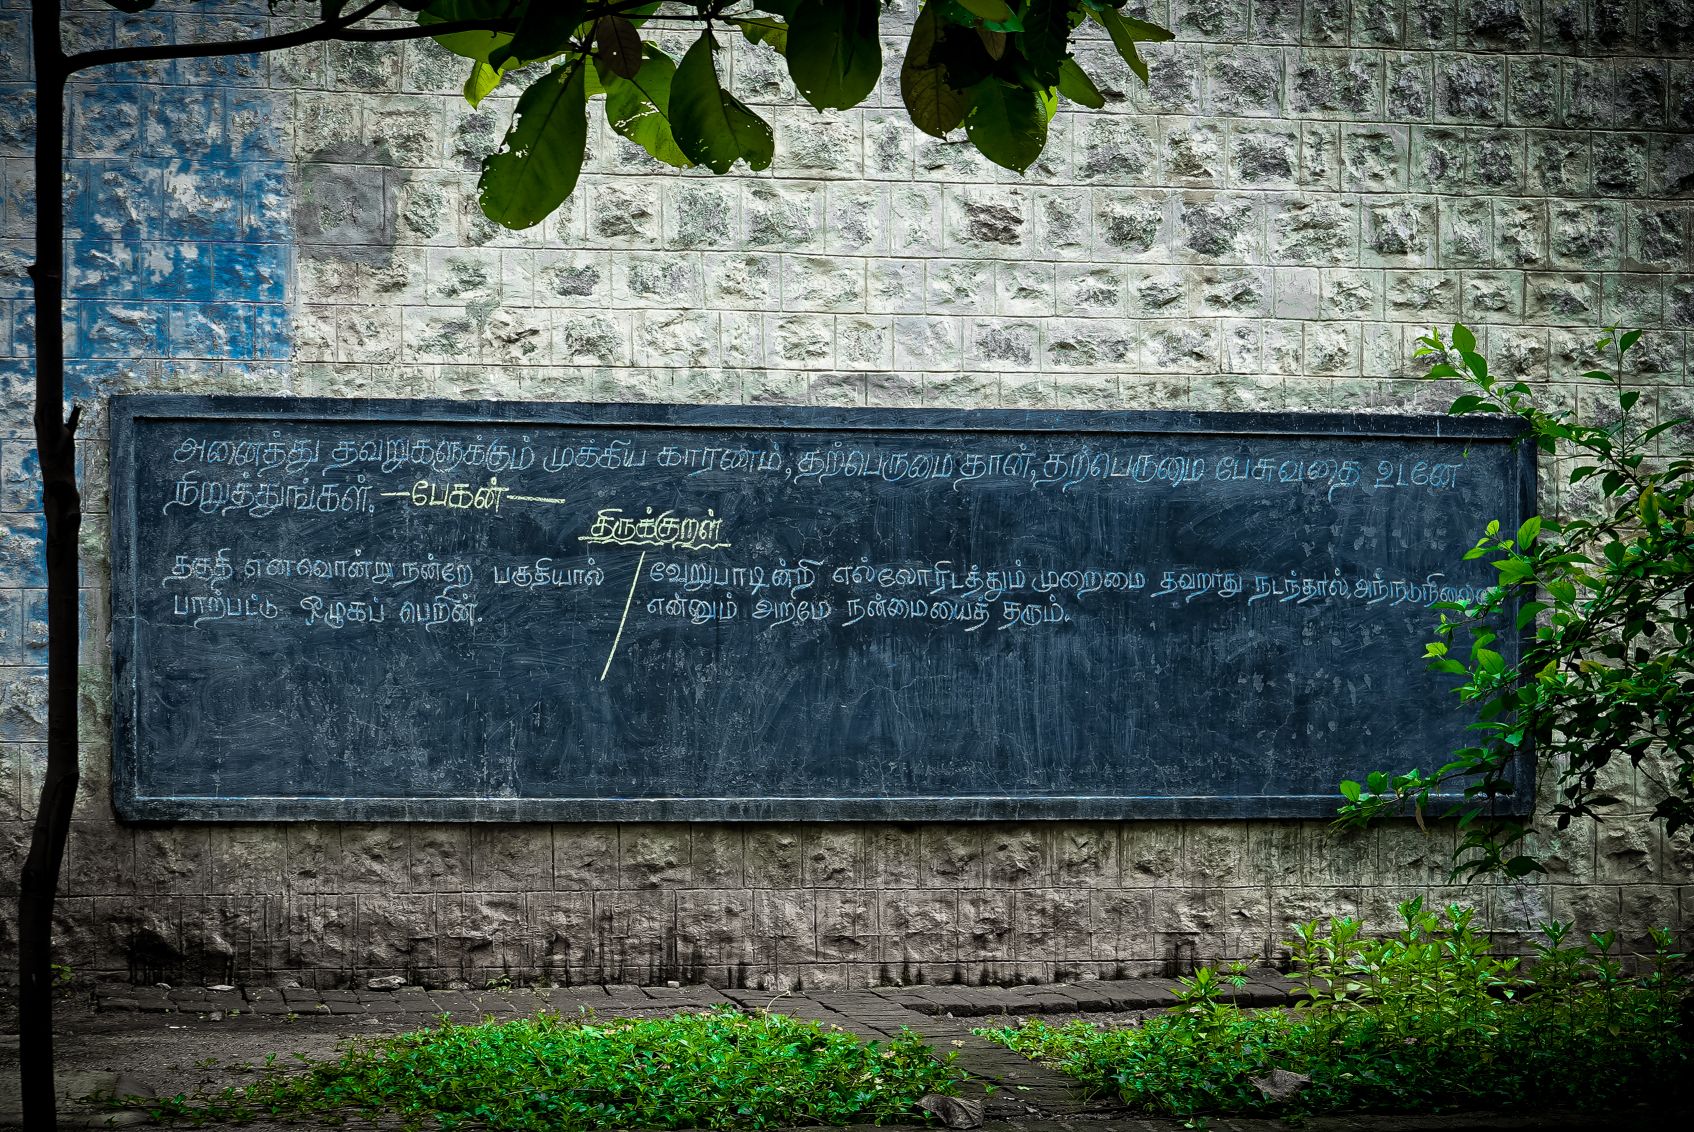 அனைத்து தவறுகளுக்கும் முக்கிய காரணம், தற்பெருமை தான், தற்பெருமை பேசுவதை உடனே
நிறுத்துங்கள். —பேகன்—
திருக்குறள்
தகுதி எனவொன்று நன்றே பகுதியால்
பாற்பட்டு ஒழுகப் பெறின்.
வேறுபாடின்றி எல்லோரிடத்தும் முறைமை தவறாது நடந்தால், அந்நடுநிலைமை
என்னும் அறமே நன்மையைத் தரும்.